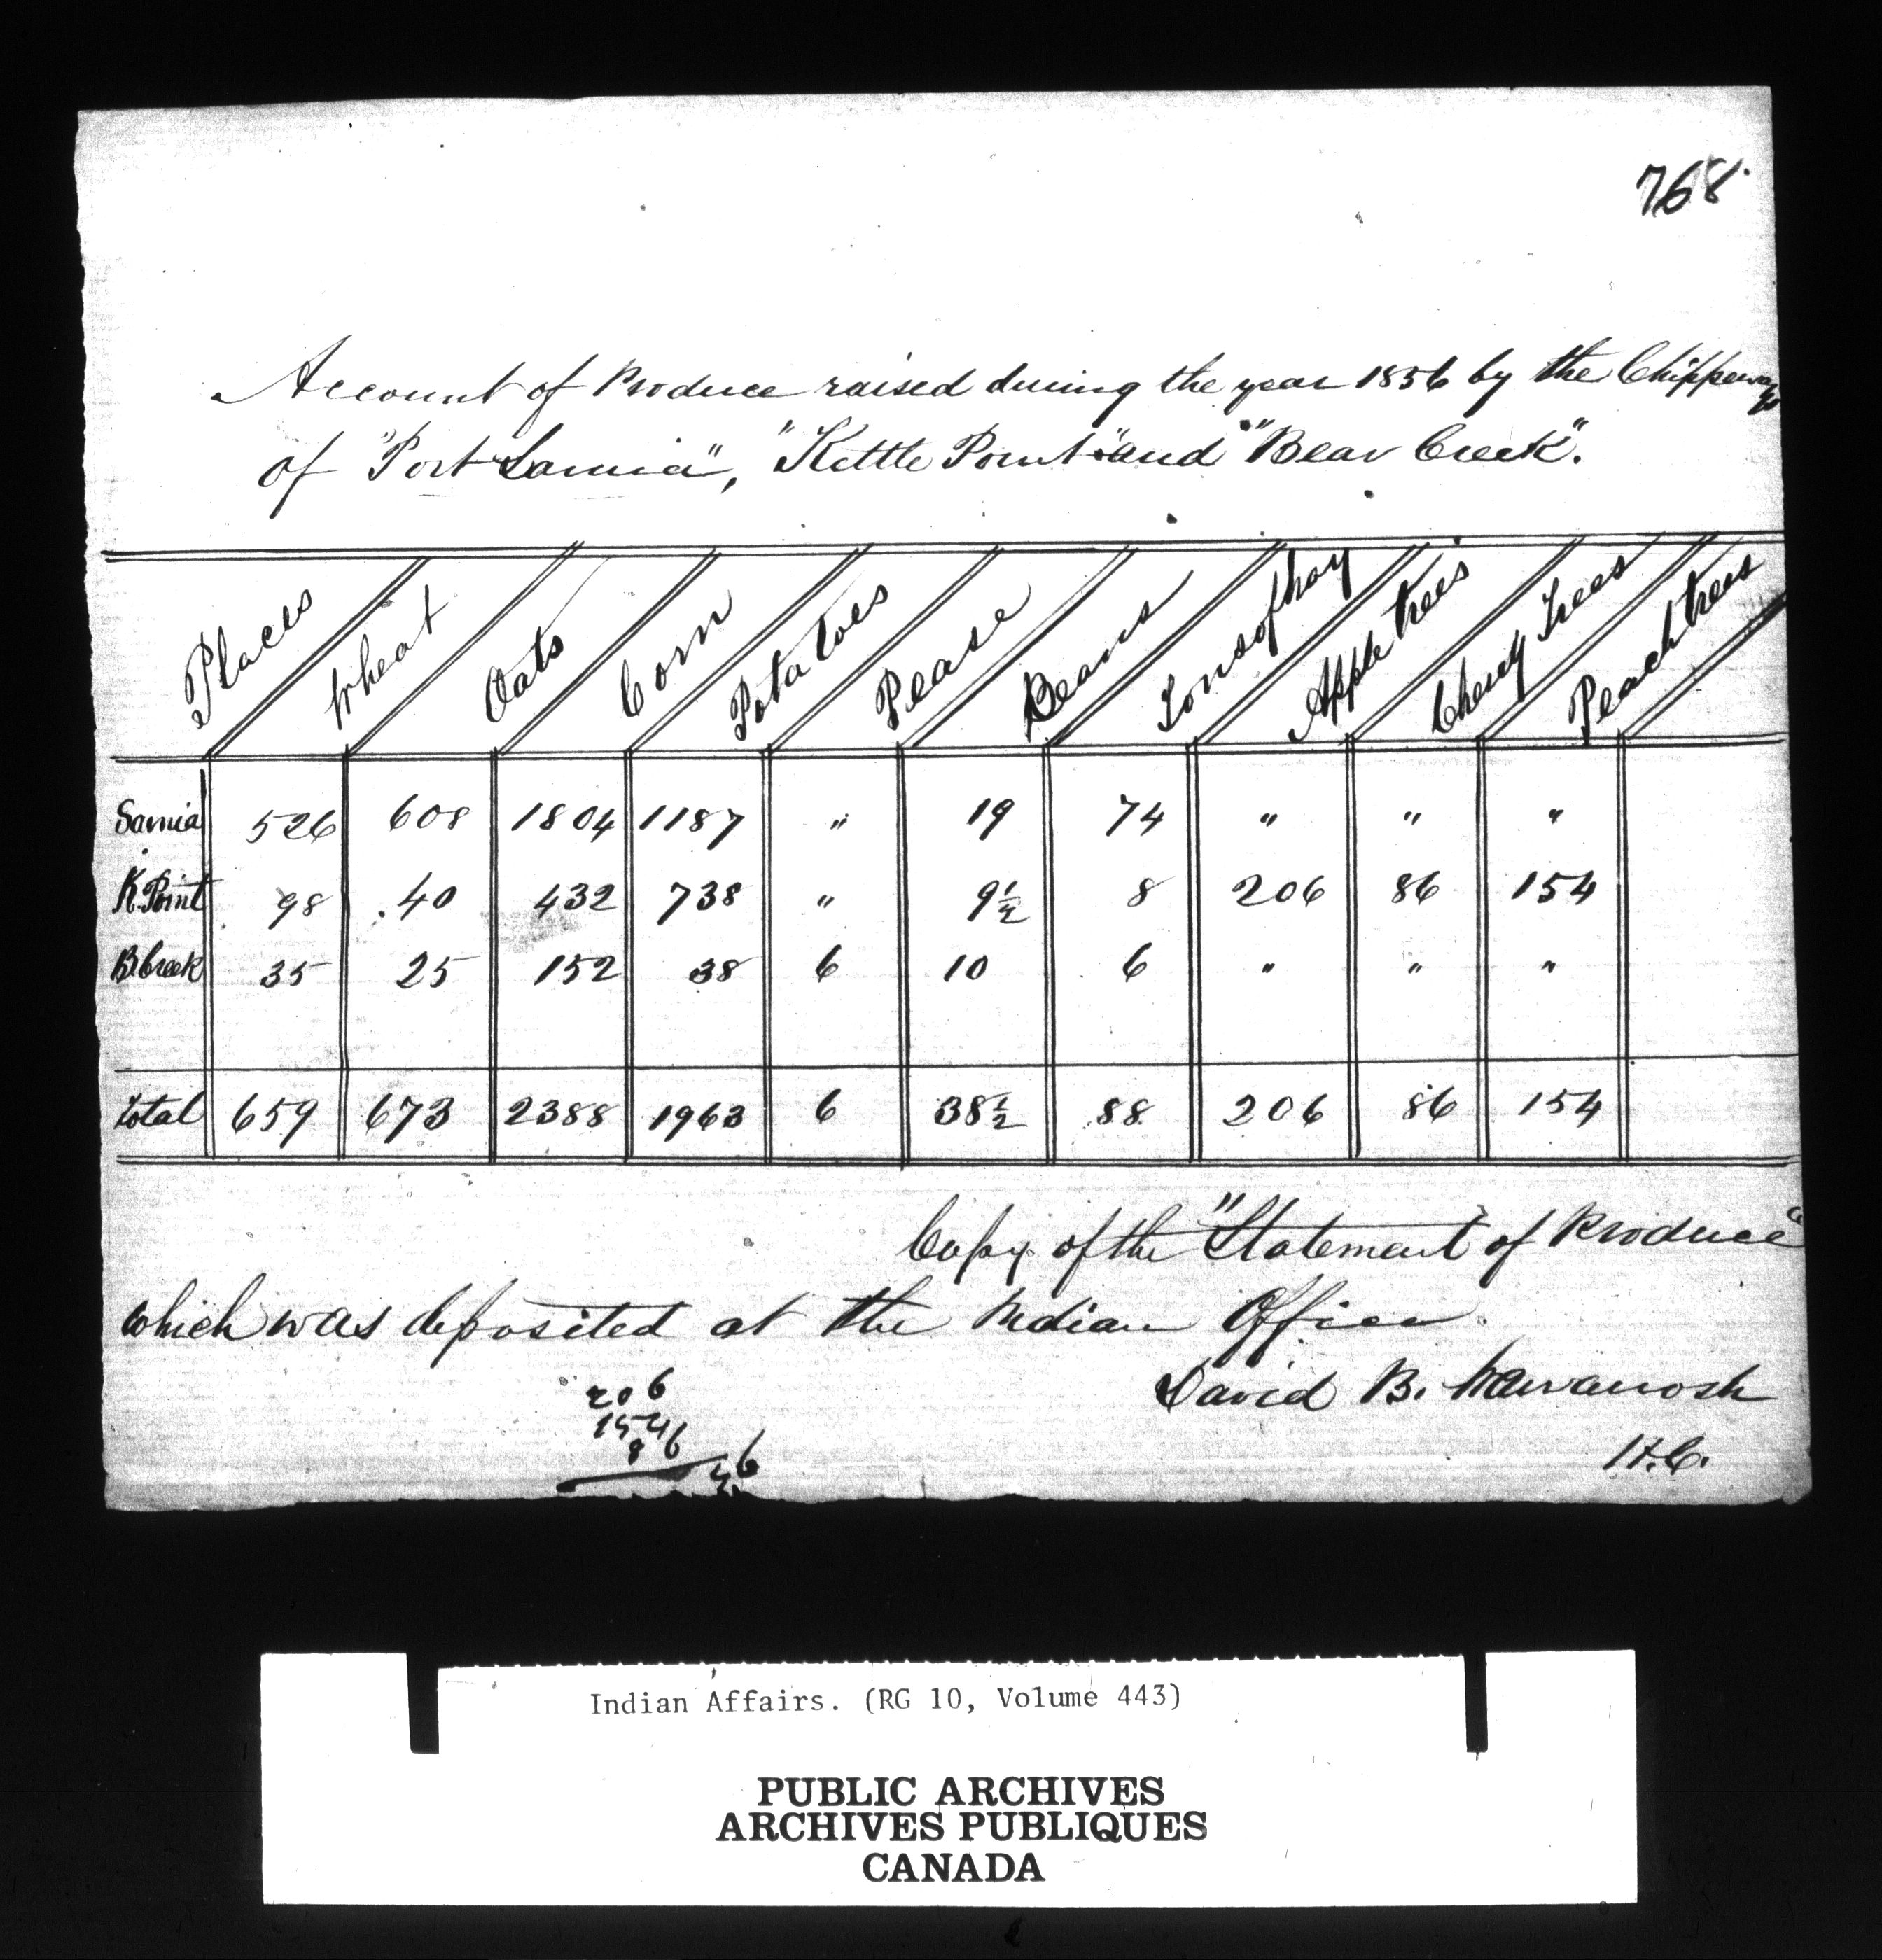 768.
Account of Produce raised during the year 1856 by the Chippeways
of "Port Sarnia", "Kettle Point" and "Bear Creek".
Places Wheat Oats Corn Potatoes Pease Beans Tons of hay Apple trees Cherry Trees Peach trees
Sarnia 526 608 1804 1187 " 19 74 " " "
K. Point 98 40 432 738 " 9 1/2 8 206 86 154
B. Creek 35 25 152 38 6 10 6 " " "
Total 659 673 2388 1963 6 38 1/2 88 206 86 154
Copy of the "Statement of Produce"
which was deposited at the Indian Office.
David B. Wawanosh
H.C.
206
154
86
Indian Affairs. (RG 10, Volume 443)
PUBLIC ARCHIVES
ARCHIVES PUBLIQUES
CANADA